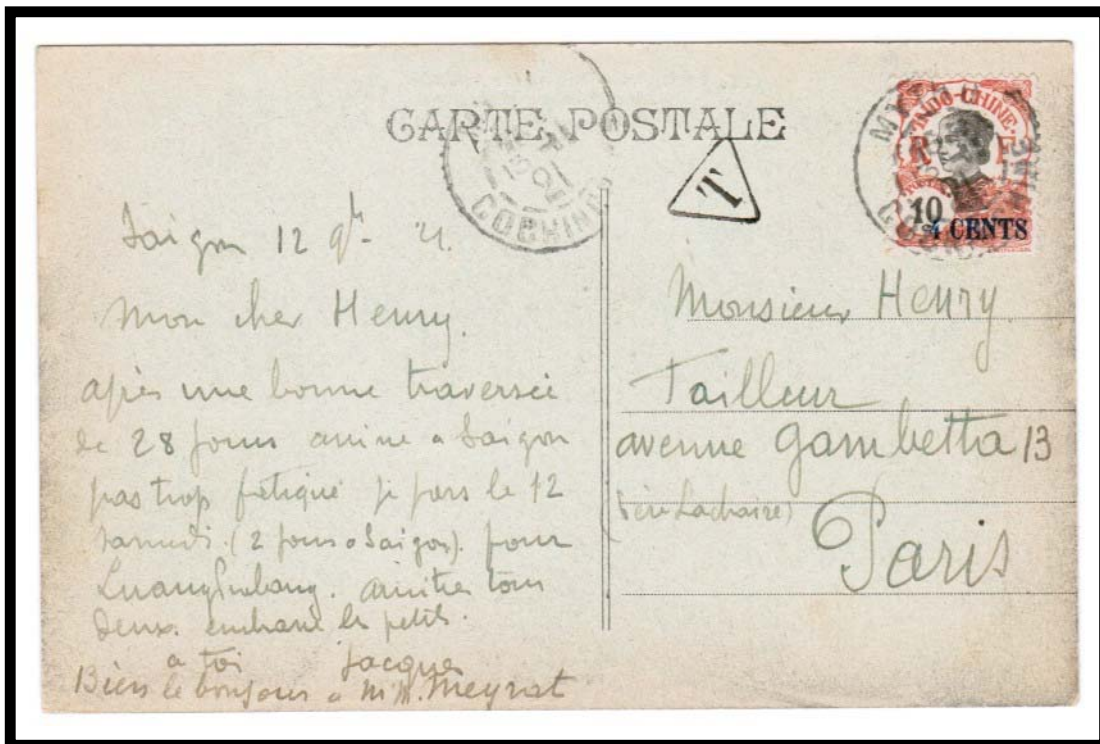 CARTE POSTALE
T
INDO-CHINE
R F
10
4 CENTS
MYTHO
COCHINCHINE
13
21
COCHINC
Saigon 12 9bre 21.
Mon cher Henry.
après une bonne traversée
de 28 jours arrivé a Saigon
pas trop fatigué je pars le 12
samedi. (2 jours a Saigon). pour
Luang Prabang. amitiés tous
deux. embrasse les petits.
a toi Jacques
Bien le bonjour a M. Meyrat
Monsieur Henry.
Tailleur
avenue Gambetta 13
(Père Lachaise)
Paris